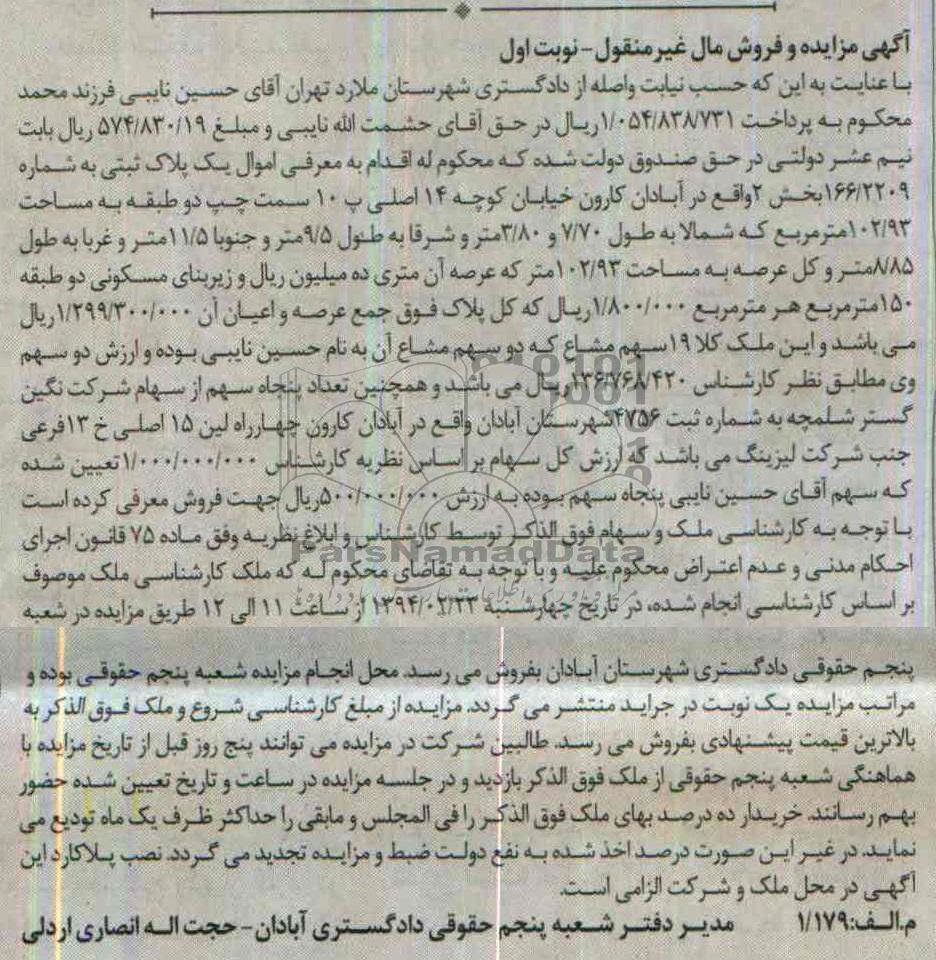 آگهی مزایده و فروش مال غیرمنقول - نوبت اول
با عنایت به این که حسب نیابت واصله از دادگستری شهرستان ملارد تهران آقای حسین نایبی فرزند محمد
محکوم به پرداخت ۱/۰۵۴/۸۳۸/۷۳۱ریال در حق آقای حشمت الله نایبی و مبلغ ۵۷۴/۸۳۰/۱۹ ریال بابت
نیم عشر دولتی در حق صندوق دولت شده که محکوم له اقدام به معرفی اموال یک پلاک ثبتی به شماره
۱۶۶/۲۲۰۹بخش ۲واقع در آبادان کارون خیابان کوچه ۱۴ اصلی پ ۱۰ سمت چپ دو طبقه به مساحت
۱۰۲/۹۳مترمربع که شمالا به طول ۷/۷۰ و ۳/۸۰متر و شرقا به طول ۹/۵متر و جنوبا ۱۱/۵متر و غربا به طول
۸/۸۵متر و کل عرصه به مساحت ۱۰۲/۹۳متر که عرصه آن متری ده میلیون ریال و زیربنای مسکونی دو طبقه
۱۵۰مترمربع هر مترمربع ۱/۸۰۰/۰۰۰ریال که کل پلاک فوق جمع عرصه و اعیان آن ۱/۲۹۹/۳۰۰/۰۰۰ریال
می باشد و این ملک کلا ۱۹سهم مشاع که دو سهم مشاع آن به نام حسین نایبی بوده و ارزش دو سهم
وی مطابق نظر کارشناس ۱۳۶/۷۶۸/۴۲۰ریال می باشد و همچنین تعداد پنجاه سهم از سهام شرکت نگین
گستر شلمچه به شماره ثبت ۴۷۵۶شهرستان آبادان واقع در آبادان کارون چهارراه لین ۱۵ اصلی خ ۱۳فرعی
جنب شرکت لیزینگ می باشد که ارزش کل سهام بر اساس نظریه کارشناس ۱/۰۰۰/۰۰۰/۰۰۰تعیین شده
که سهم آقای حسین نایبی پنجاه سهم بوده به ارزش ۵۰۰/۰۰۰/۰۰۰ریال جهت فروش معرفی کرده است
با توجه به کارشناسی ملک و سهام فوق الذکر توسط کارشناس و ابلاغ نظریه وفق ماده ۷۵ قانون اجرای
احکام مدنی و عدم اعتراض محکوم علیه و با توجه به تقاضای محکوم له که ملک کارشناسی ملک موصوف
بر اساس کارشناسی انجام شده، در تاریخ چهارشنبه ۱۳۹۴/۰۲/۲۳ از ساعت ۱۱ الی ۱۲ طریق مزایده در شعبه
پنجم حقوقی دادگستری شهرستان آبادان بفروش می رسد. محل انجام مزایده شعبه پنجم حقوقی بوده و
مراتب مزایده یک نوبت در جراید منتشر می گردد. مزایده از مبلغ کارشناسی شروع و ملک فوق الذکر به
بالاترین قیمت پیشنهادی بفروش می رسد. طالبین شرکت در مزایده می توانند پنج روز قبل از تاریخ مزایده با
هماهنگی شعبه پنجم حقوقی از ملک فوق الذکر بازدید و در جلسه مزایده در ساعت و تاریخ تعیین شده حضور
بهم رسانند. خریدار ده درصد بهای ملک فوق الذکر را فی المجلس و مابقی را حداکثر ظرف یک ماه تودیع می
نماید. در غیر این صورت درصد اخذ شده به نفع دولت ضبط و مزایده تجدید می گردد. نصب پلاکارد این
آگهی در محل ملک و شرکت الزامی است.
م.الف:۱/۱۷۹ مدیر دفتر شعبه پنجم حقوقی دادگستری آبادان - حجت اله انصاری اردلی
ParsNamadData